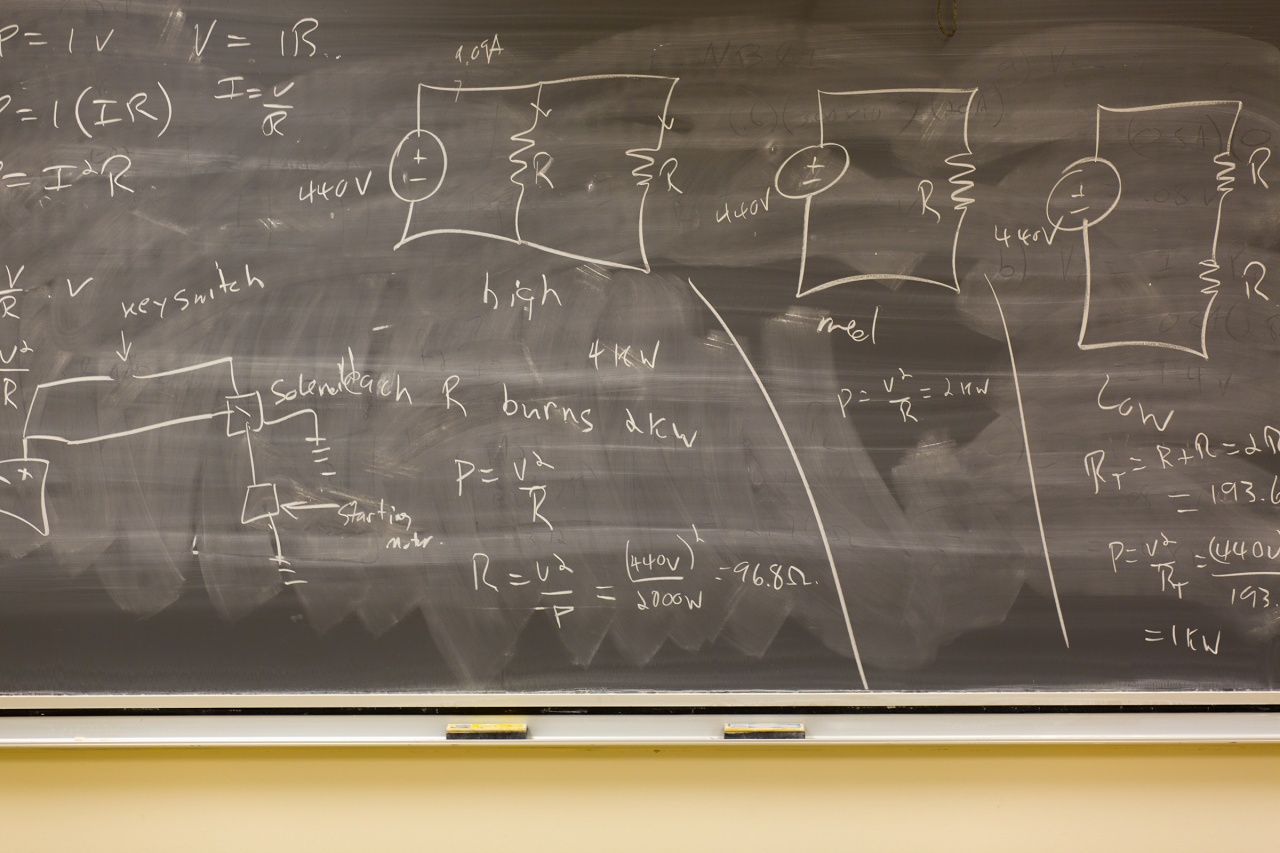 P = I V
V = IR
P = I (IR)
I = V/R
= I²R
V/R . V
V²/R
key switch
Starting
motor.
440V
R
R
high
4 KW
each R burns 2KW
P = V²/R
R = V²/P = (440V)²/2000W = 96.8Ω.
440V
R
med
P = V²/R = 2KW
440V
R
R
Low
R_T = R + R = 2R
= 193.6
P = V²/R_T = (440V/193.
= 1KW